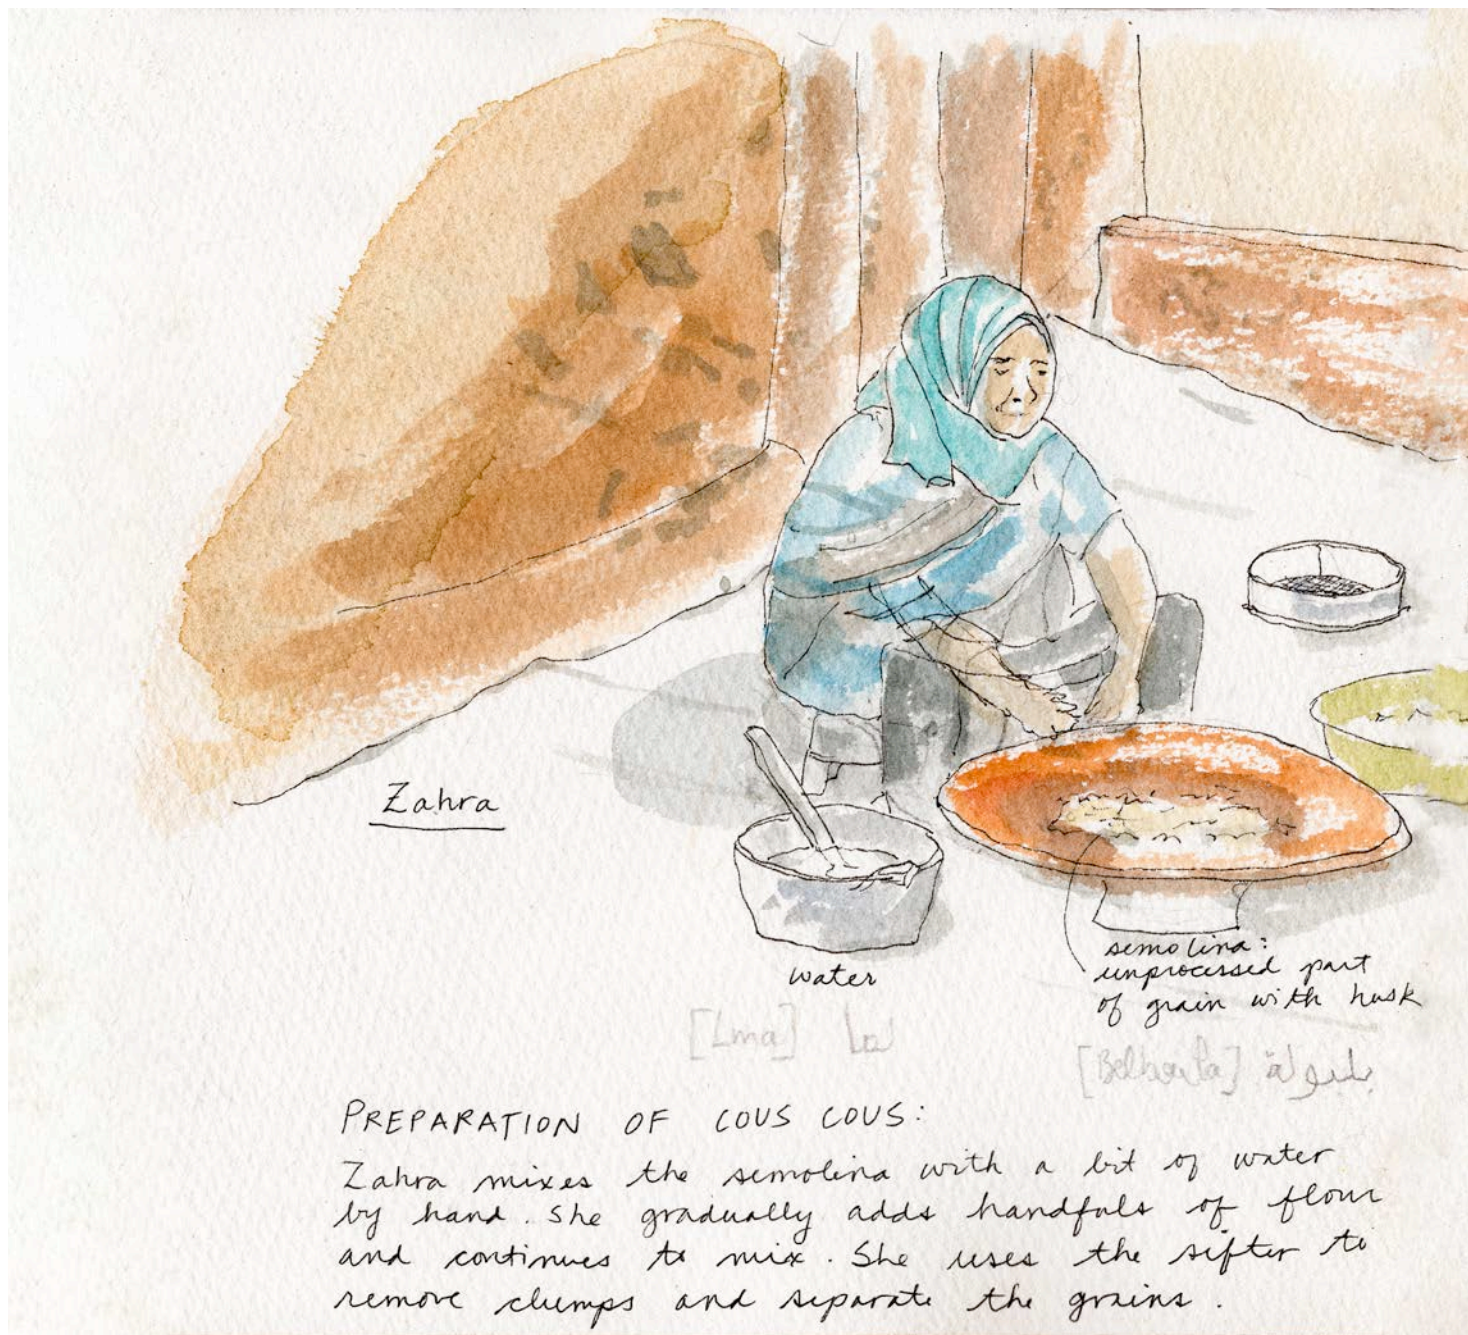 Zahra
water
semolina:
unprocessed part
of grain with husk
[Lma] لما
[Belboula] بلبولة
PREPARATION OF COUS COUS:
Zahra mixes the semolina with a bit of water
by hand. She gradually adds handfuls of flour
and continues to mix. She uses the sifter to
remove clumps and separate the grains.